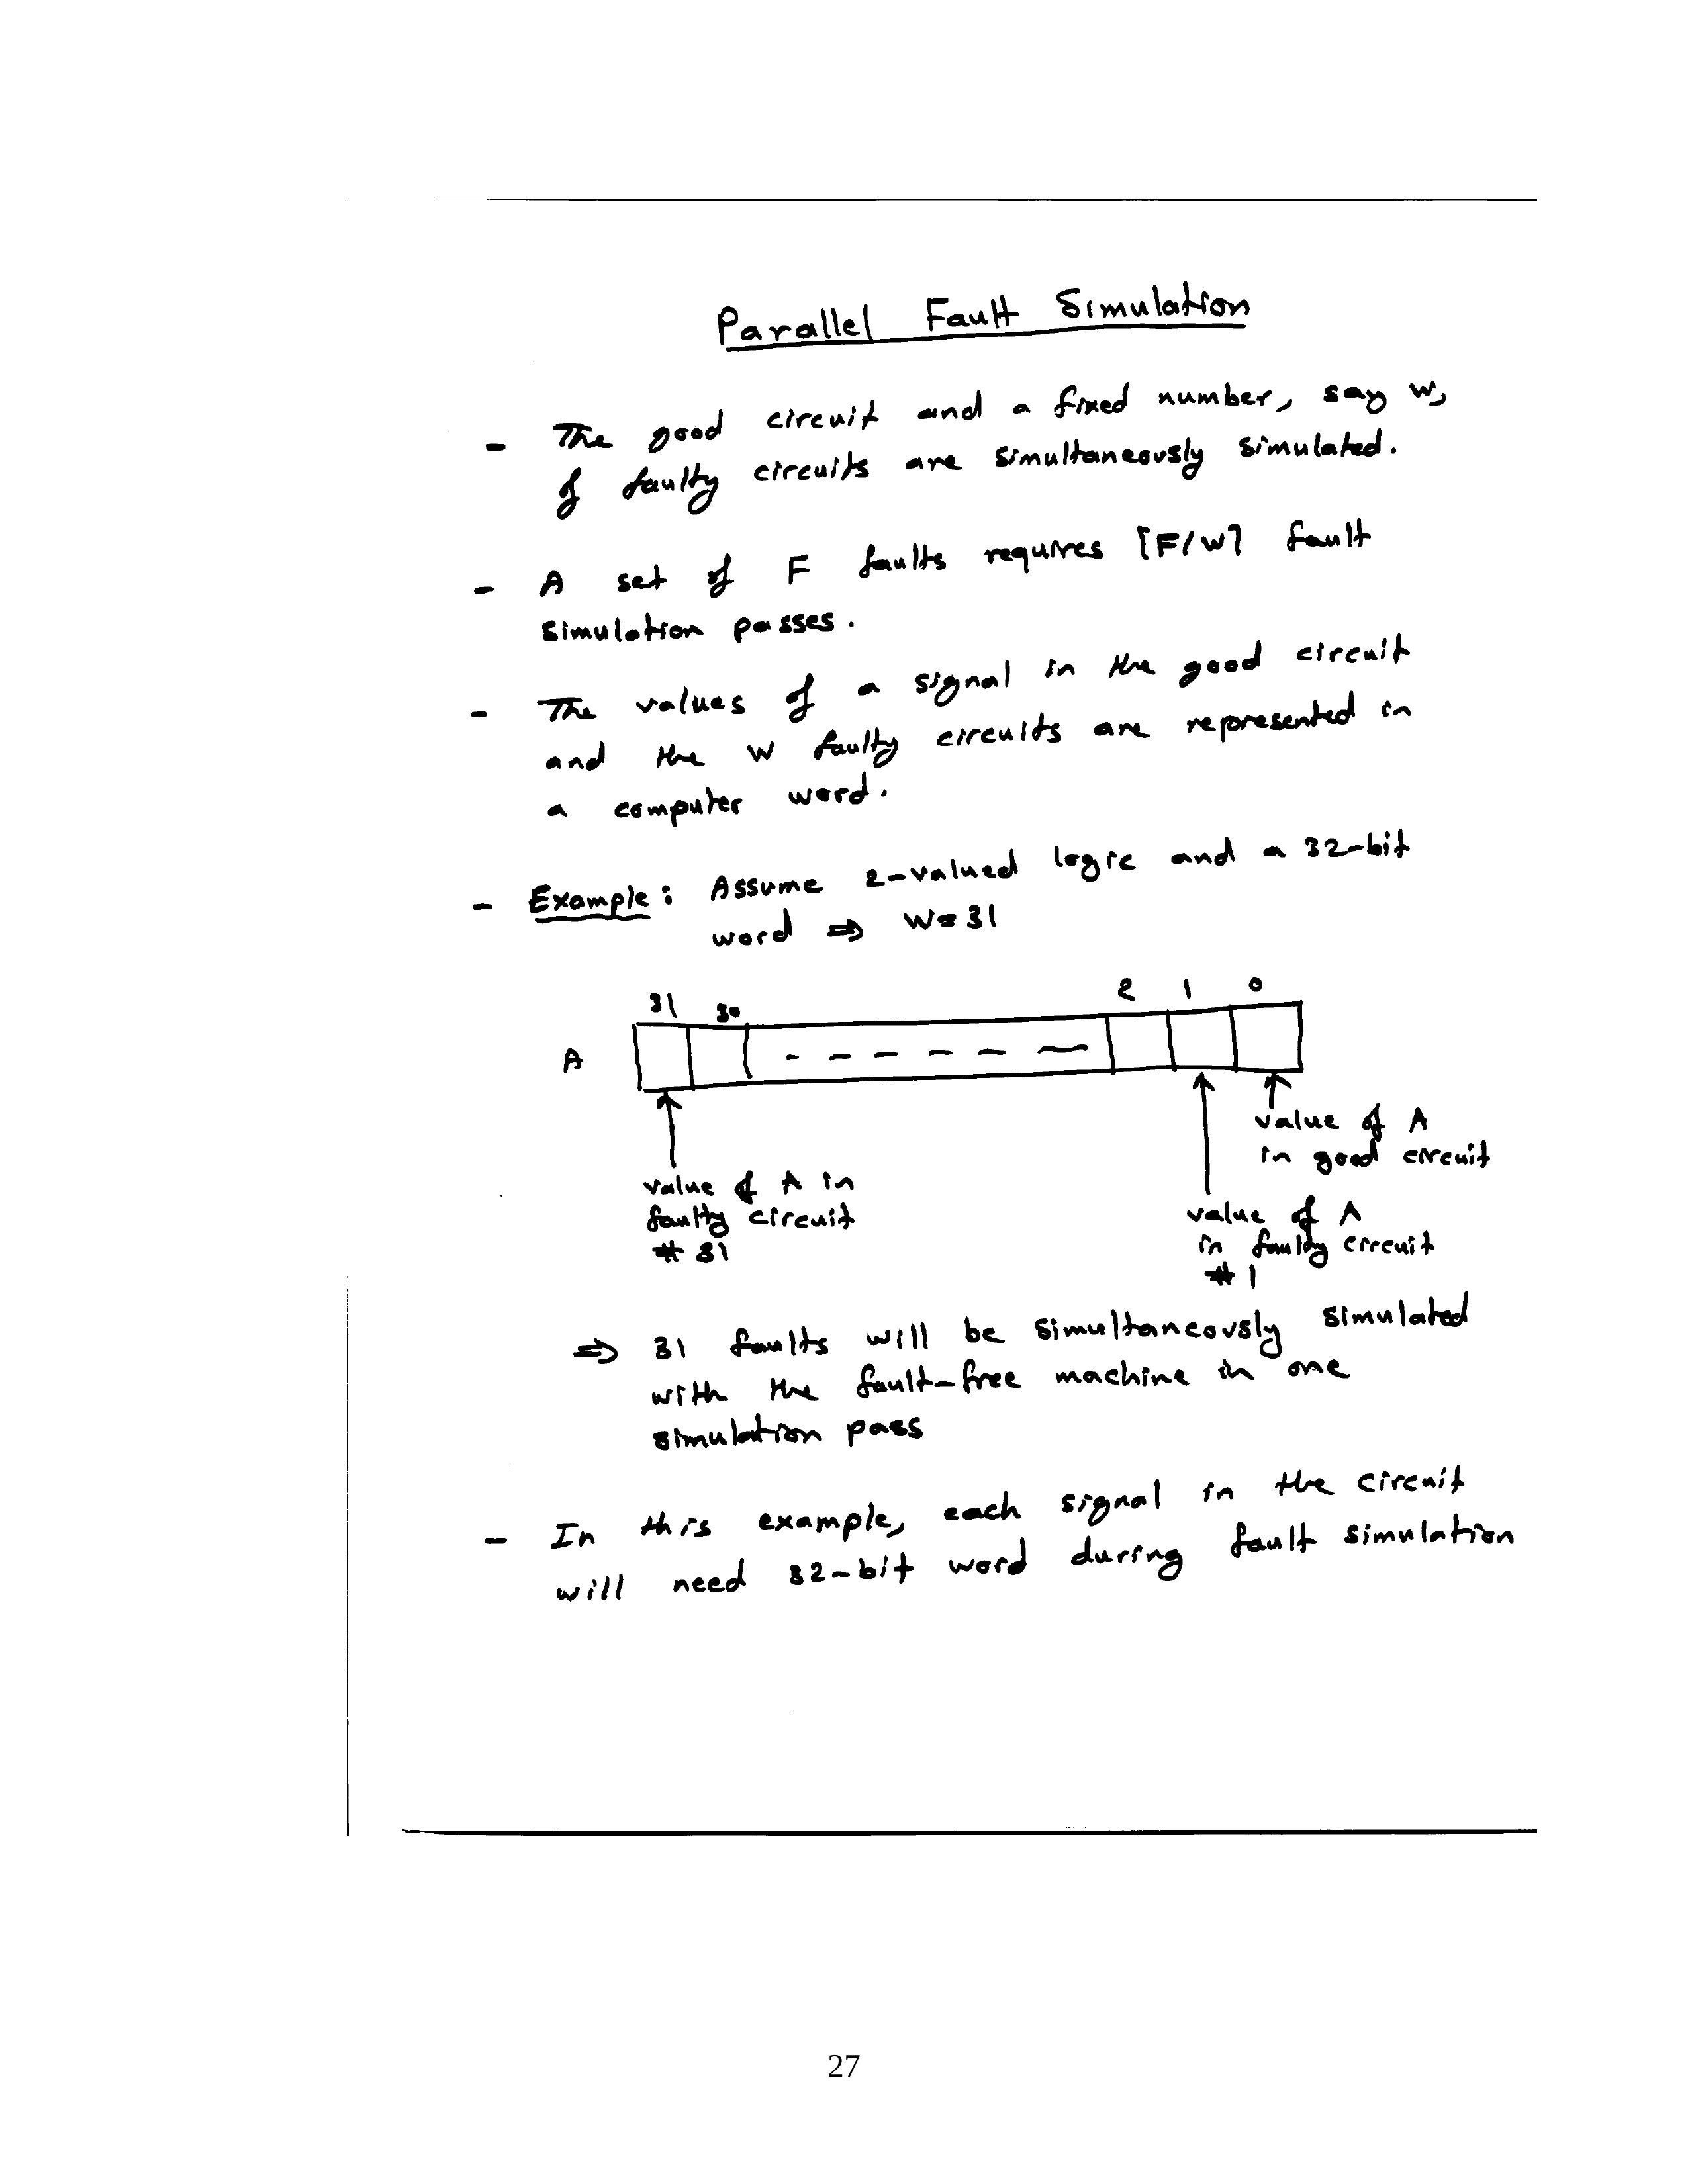 Parallel Fault Simulation
- The good circuit and a fixed number, say W,
of faulty circuits are simultaneously simulated.
- A set of F faults requires ⌈F/W⌉ fault
simulation passes.
- The values of a signal in the good circuit
and the W faulty circuits are represented in
a computer word.
- Example: Assume 2-valued logic and a 32-bit
word ⇒ W=31
31 30 2 1 0
A - - - - - -
value of A
in good circuit
value of A in
faulty circuit
# 31
value of A
in faulty circuit
# 1
⇒ 31 faults will be simultaneously simulated
with the fault-free machine in one
simulation pass
- In this example, each signal in the circuit
will need 32-bit word during fault simulation
27